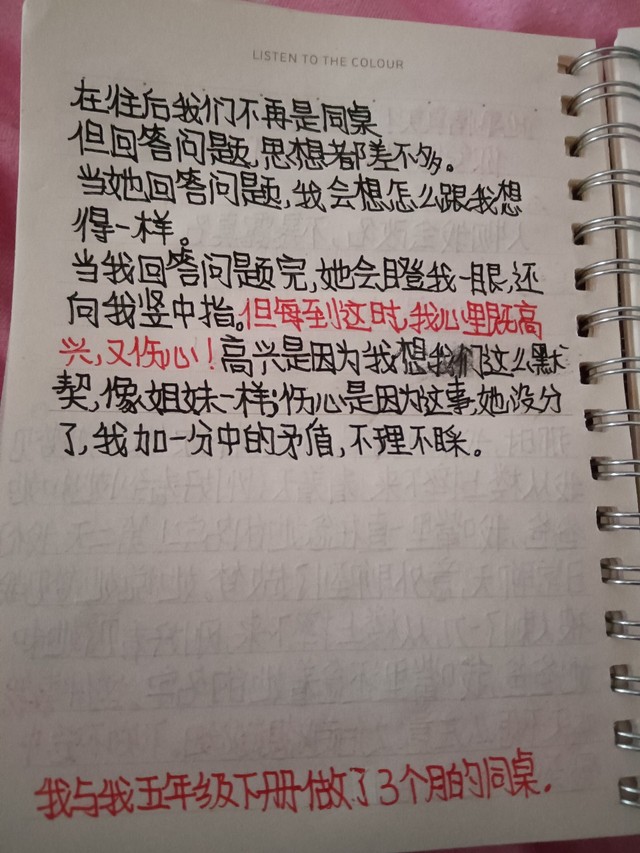 LISTEN TO THE COLOUR
在往后我们不再是同桌
但回答问题,思想都差不多。
当她回答问题,我会想怎么跟我想
得一样。
当我回答问题完,她会瞪我一眼,还
向我竖中指。但每到这时,我心里既高
兴,又伤心!高兴是因为我想我们这么默
契,像姐妹一样;伤心是因为这事,她没分
了,我加一分中的矛值,不理不睬。
我与我五年级下册做了3个月的同桌.